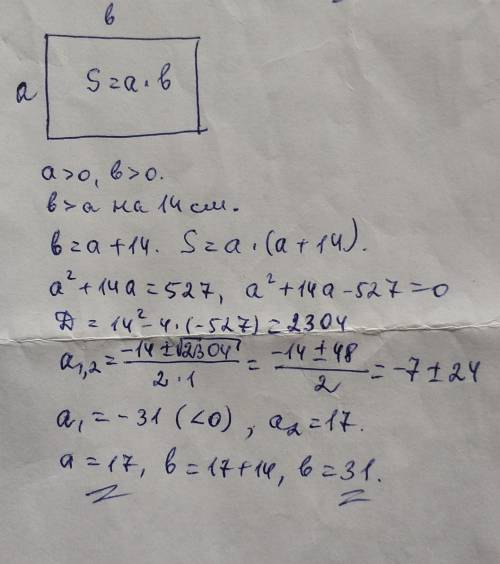 в
a
S=a·в
a>0, в>0.
в>a на 14 см.
в=a+14. S=a·(a+14).
a²+14a=527, a²+14a-527=0
D=14²-4·(-527)=2304
a₁,₂=(-14±√2304)/(2·1)=(-14±48)/2=-7±24
a₁=-31 (<0), a₂=17.
a=17, в=17+14, в=31.